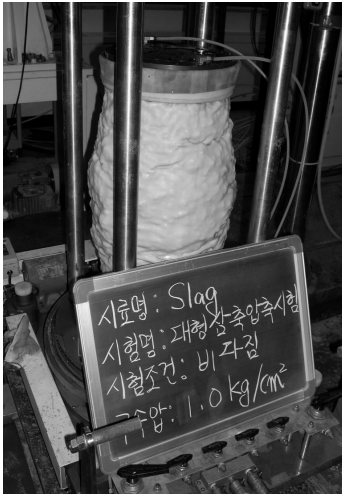 시료명 : Slag
시험명 : 대형삼축압축시험
시험조건 : 비 다짐
구속압 : 1.0 kg/cm²